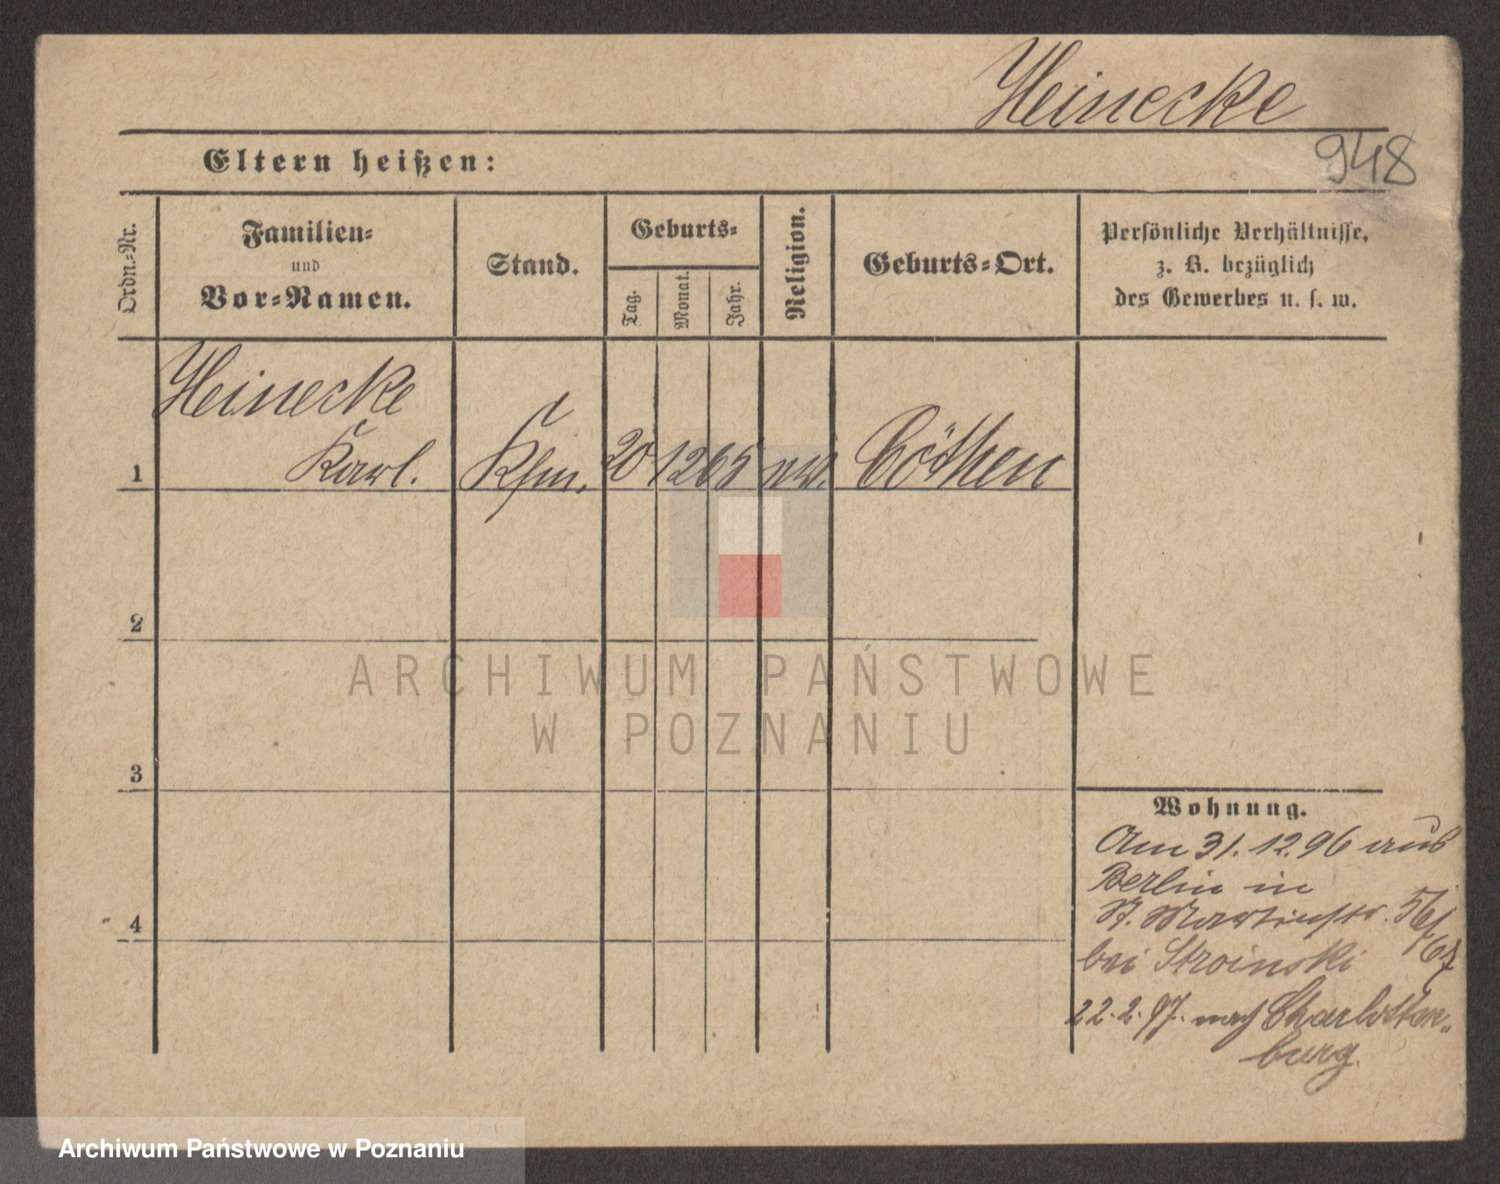 Heinecke
948
Eltern heißen:
Ordn.-Nr.
Familien-
und
Vor-Namen.
Stand.
Geburts-
Tag.
Monat.
Jahr.
Religion.
Geburts-Ort.
Persönliche Verhältnisse,
z. B. bezüglich
des Gewerbes u. s. w.
Heinecke
1 Karl. Kfm. 20 12 65 Cöthen
2
3
4
Wohnung.
Am 31.12.96 aus
Berlin in
St. Martinstr. 56/
67
bei Stroinski
22.2.97. nach Charlotten-
burg.
ARCHIWUM PAŃSTWOWE
W POZNANIU
Archiwum Państwowe w Poznaniu